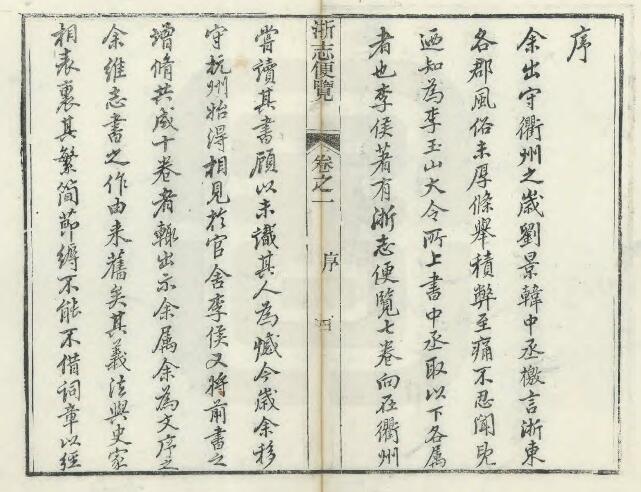 序
余出守衢州之歲劉景韓中丞檄言浙東
各郡風俗未厚條舉積弊至痛不忍聞見
迺知為李玉山大令所上書中丞取以下各屬
者也李侯著有浙志便覽七卷向在衢州
浙志便覽
卷之一
序
四
嘗讀其書顧以未識其人為憾今歲余移
守杭州始得相見於官舍李侯又將前書之
增脩共成十卷者輙出示余属余為文序之
余維志書之作由来舊矣其義法與史家
相表裏其繁简節縟不能不借詞章以經